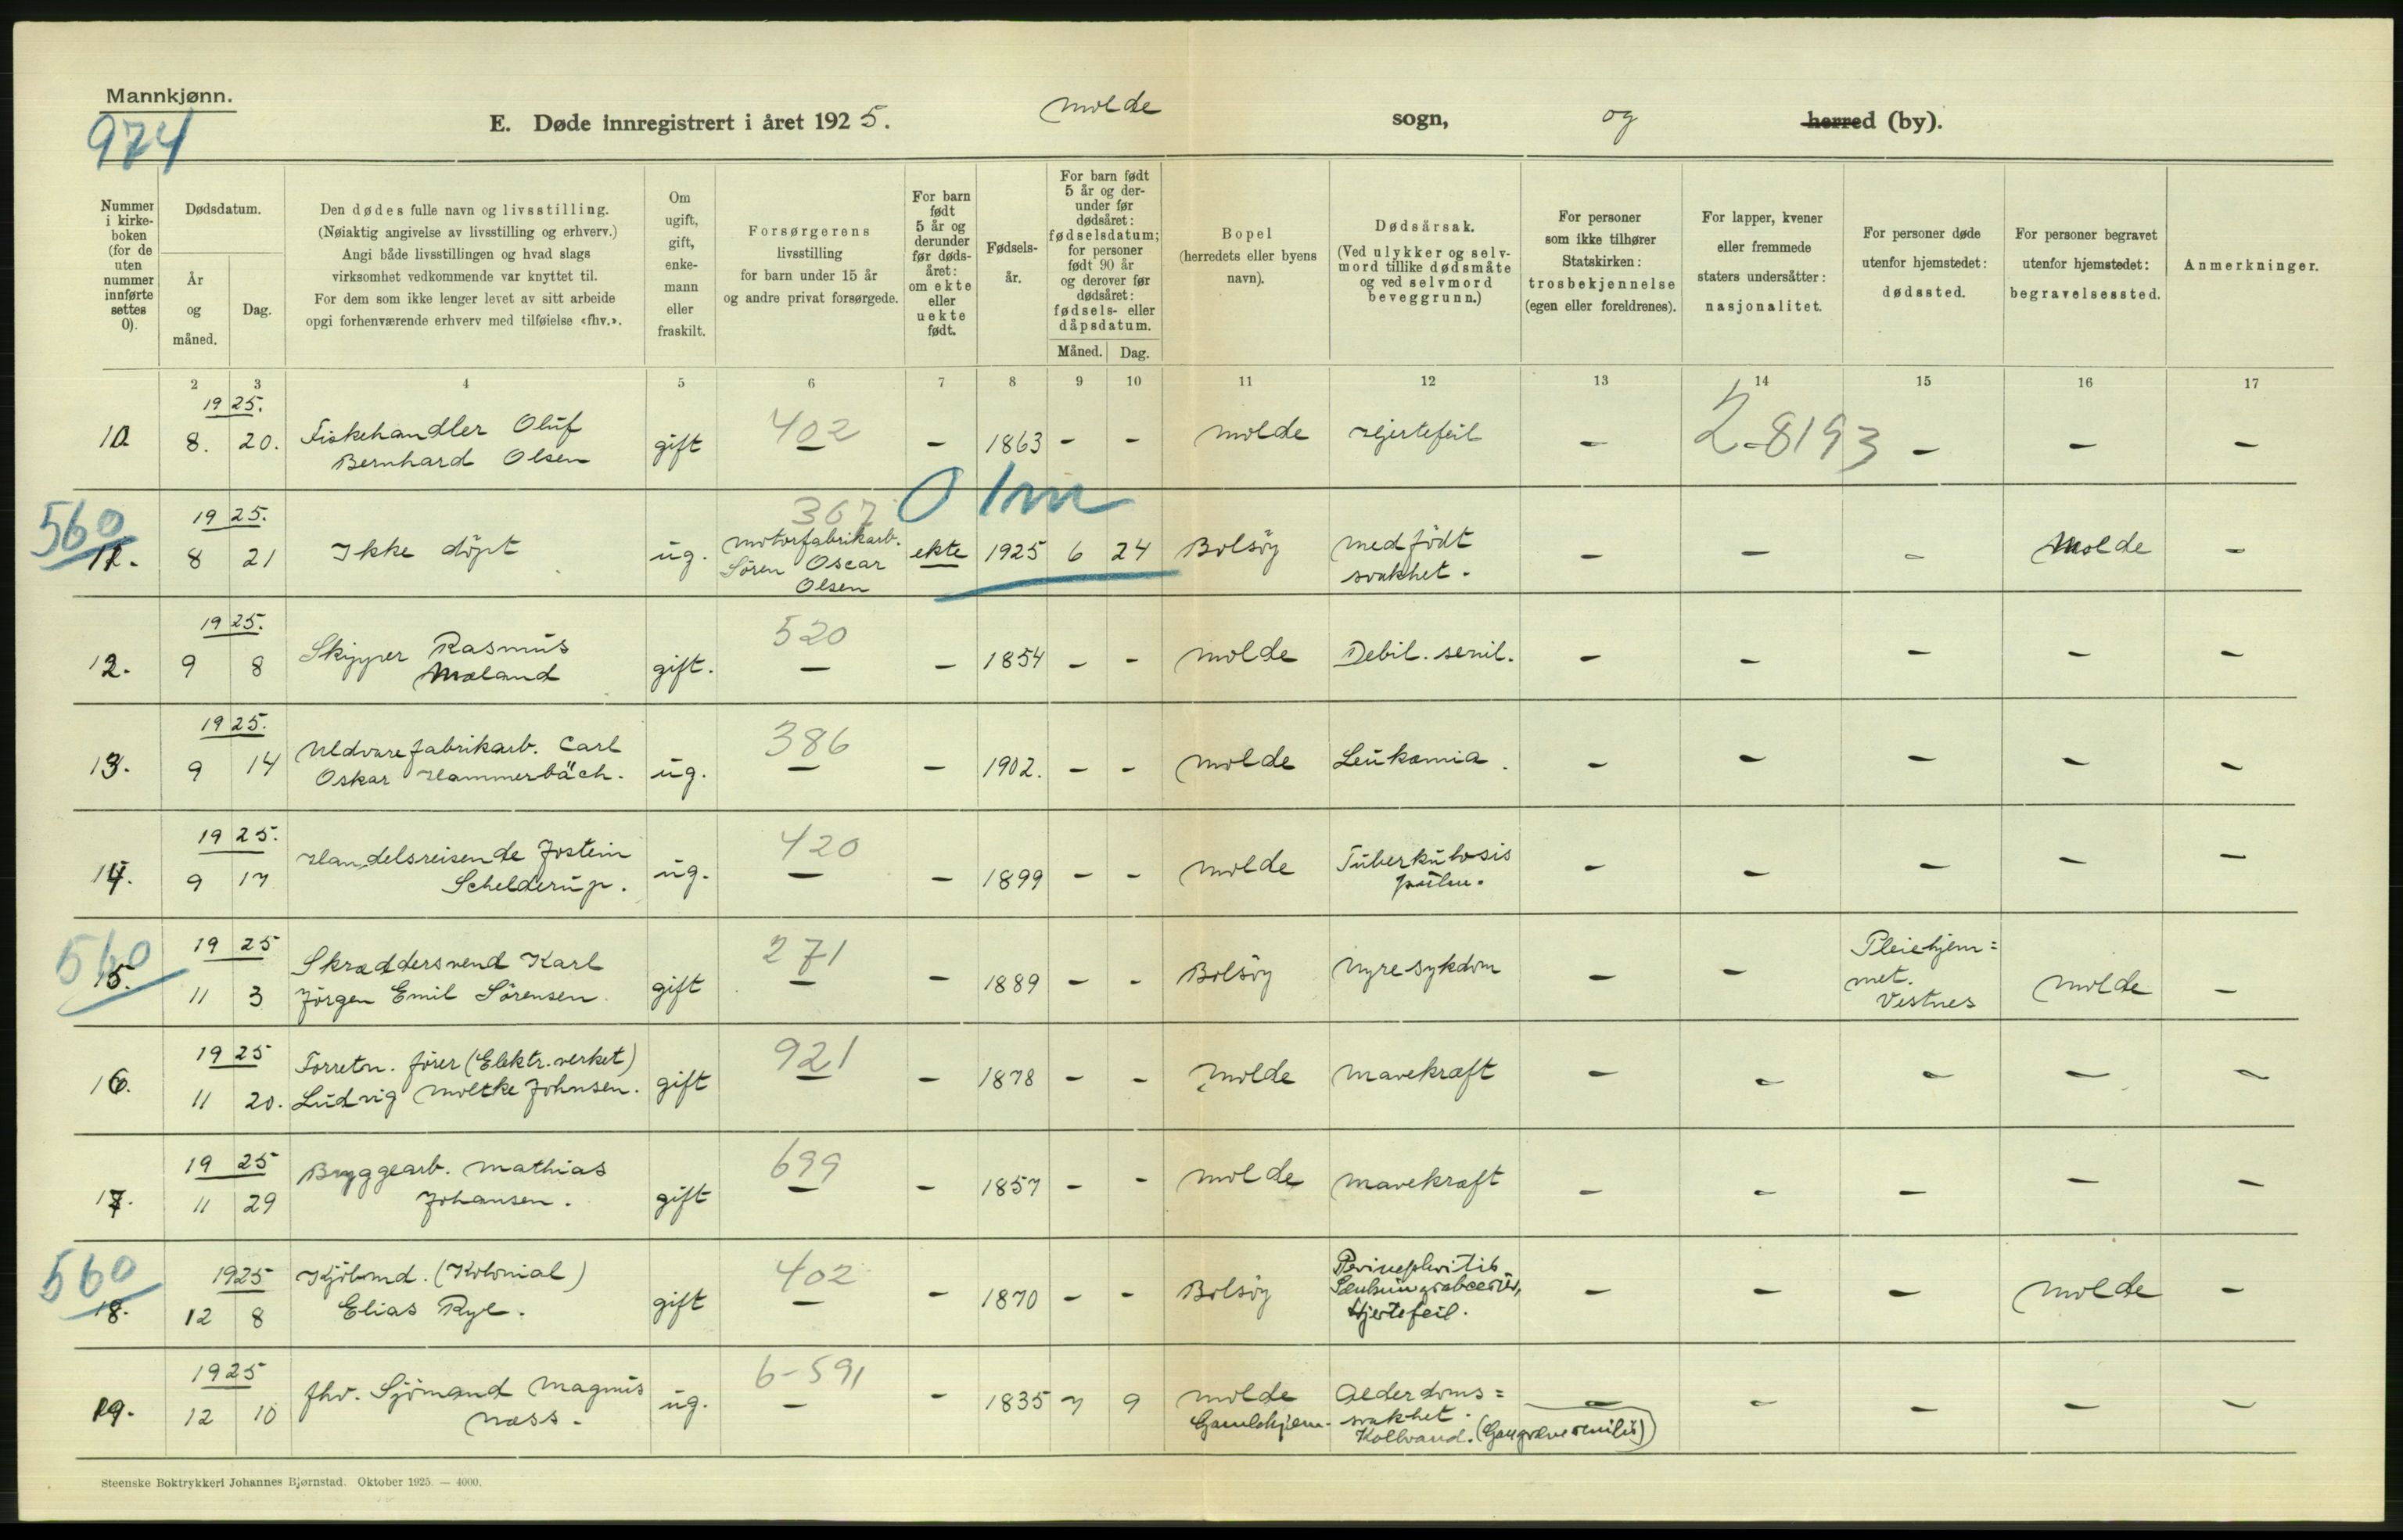 Mannkjønn.
974
E. Døde innregistrert i året 1925. Molde sogn, og herred (by).
Nummer i kirkeboken (for de uten nummer innførte settes 0).
Dødsdatum.
År og måned.
Dag.
Den dødes fulle navn og livsstilling.
(Nøiaktig angivelse av livsstilling og erhverv.)
Angi både livsstillingen og hvad slags
virksomhet vedkommende var knyttet til.
For dem som ikke lenger levet av sitt arbeide
opgi forhenværende erhverv med tilføielse «fhv.».
Om ugift, gift, enkemann eller fraskilt.
Forsørgerens
livsstilling
for barn under 15 år
og andre privat forsørgede.
For barn født 5 år og derunder før dødsåret: om ekte eller uekte født.
Fødselsår.
For barn født 5 år og derunder før dødsåret: fødselsdatum; for personer født 90 år og derover før dødsåret: fødsels- eller dåpsdatum.
Måned. Dag.
Bopel
(herredets eller byens
navn).
Dødsårsak.
(Ved ulykker og selvmord tillike dødsmåte og ved selvmord beveggrunn.)
For personer
som ikke tilhører
Statskirken:
trosbekjennelse
(egen eller foreldrenes).
For lapper, kvener
eller fremmede
staters undersåtter:
nasjonalitet.
For personer døde
utenfor hjemstedet:
dødssted.
For personer begravet
utenfor hjemstedet:
begravelsessted.
Anmerkninger.
2 3 4 5 6 7 8 9 10 11 12 13 14 15 16 17
1925.
10 8. 20. Fiskehandler Oluf gift 402 – – 1863 – – Molde Hjertefeil – 2-8193 – – –
Bernhard Olsen
0 1m
560 1925. 367
11. 8 21 Ikke döpt ug. Motorfabrikarb. ekte 1925 6 24 Bolsöy Medfödt – – – Molde –
Sören Oscar svakhet.
Olsen
1925. 520
12. 9 8 Skipper Rasmus gift. – – 1854 – – Molde Debil. senil. – – – – –
Moland
1925. 386
13. 9 14 Uldvarefabrikarb. Carl ug. – – 1902. – – Molde Leukæmia. – – – – –
Oskar Hammerbäch.
1925. 420
14. 9 17 Handelsreisende Jostein ug. – – 1899 – – Molde Tuberkulosis – – – – –
Schelderup. pulm.
560 1925 271
15. 11 3 Skræddersvend Karl gift – – 1889 – – Bolsöy Nyresykdom – – Pleiehjem= Molde –
Jörgen Emil Sörensen. met.
Vestnes
1925 921
16. 11 20. Forretn. förer (Elektr.verket) gift – – 1878 – – Molde Mavekræft – – – – –
Ludvig Moltke Johnsen.
1925 699
17. 11 29 Bryggearb. Mathias gift – – 1857 – – Molde Mavekræft – – – – –
Johansen.
560 1925 402
18. 12 8 Kjöbmd. (Kolonial) gift – – 1870 – – Bolsöy Perinephritis – – – Molde –
Elias Ryl. Hjertefeil.
1925 6-591
19. 12 10 fhv. Sjömand Magnus ug. – – 1835 7 9 Molde Alderdoms= – – – – –
Næss. Gamlehjem. svakhet.
Kolbrand. (Gangræne senilis)
Steenske Boktrykkeri Johannes Bjørnstad. Oktober 1925. — 4000.